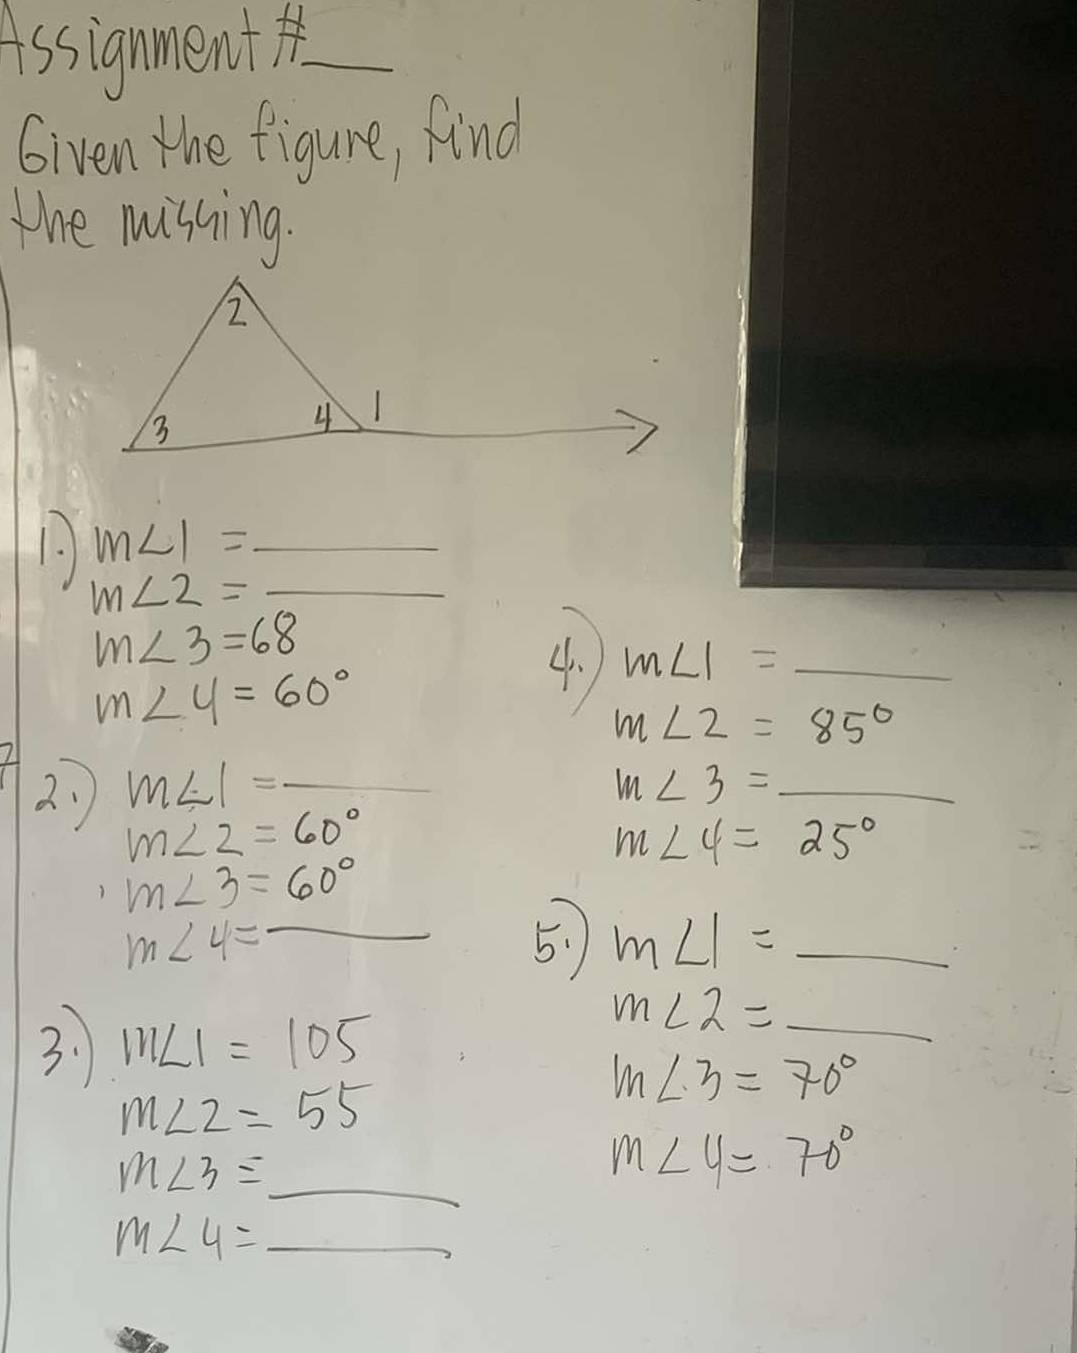 Assignment #___
Given the figure, find
the missing.
2
3 4 1
1.) m∠1 = ______
m∠2 = ______
m∠3 = 68
m∠4 = 60°
2.) m∠1 = ______
m∠2 = 60°
m∠3 = 60°
m∠4 = ______
3.) m∠1 = 105
m∠2 = 55
m∠3 = ______
m∠4 = ______
4.) m∠1 = ______
m∠2 = 85°
m∠3 = ______
m∠4 = 25°
5.) m∠1 = ______
m∠2 = ______
m∠3 = 70°
m∠4 = 70°